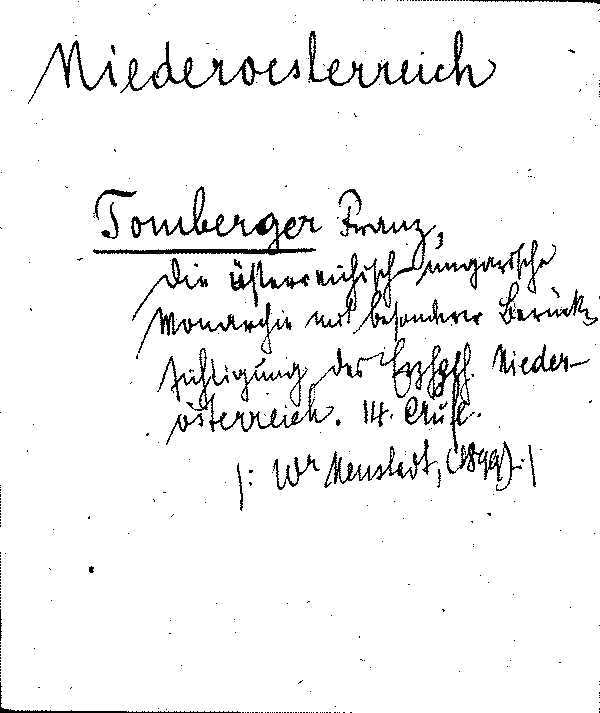 Niederoesterreich
Tomberger Franz,
Die österreichisch-ungarische
Monarchie mit besonderer Berück-
sichtigung des Erzhgth. Nieder-
österreich. 14. Aufl.
|: Wr Neustadt, (1899). :|